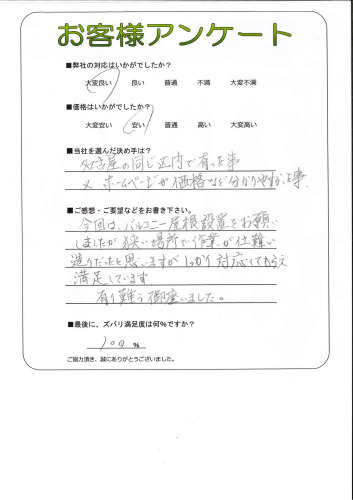 お客様アンケート
■弊社の対応はいかがでしたか?
大変良い 良い 普通 不満 大変不満
■価格はいかがでしたか?
大変安い 安い 普通 高い 大変高い
■当社を選んだ決め手は?
名古屋の同じ区内で有った事
× ホームページが価格など分かりやすかった事、
■ご感想・ご要望などをお書き下さい。
今回は、バルコニー屋根設置をお願い
しましたが狭い場所で作業が仕難い
造りだったと思いますがしっかり対応してもらえ
満足しています
有り難う御座いました。
■最後に、ズバリ満足度は何%ですか?
100 %
ご協力頂き、誠にありがとうございました。